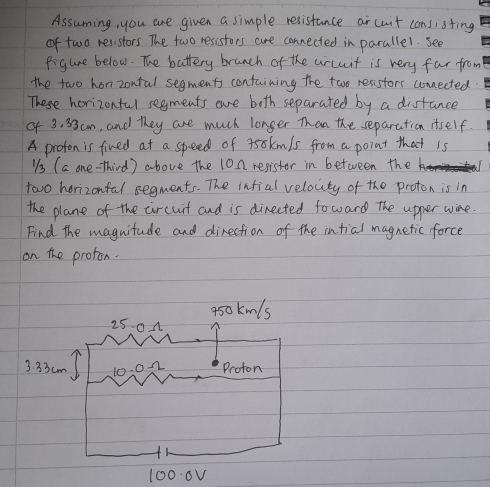 Assuming, you are given a simple resistance circuit consisting
of two resistors. The two resistors are connected in parallel. See
figure below. The battery branch of the circuit is very far from
the two horizontal segments containing the two resistors connected.
These horizontal segments are both separated by a distance
of 3.33cm, and they are much longer than the separation itself.
A proton is fired at a speed of 750km/s from a point that is
1/3 (a one-third) above the 10Ω resistor in between the
two horizontal segments. The intial velocity of the proton is in
the plane of the circuit and is directed toward the upper wire.
Find the magnitude and direction of the intial magnetic force
on the proton.
750km/s
25.0Ω
3.33cm
10.0Ω
Proton
100.0V